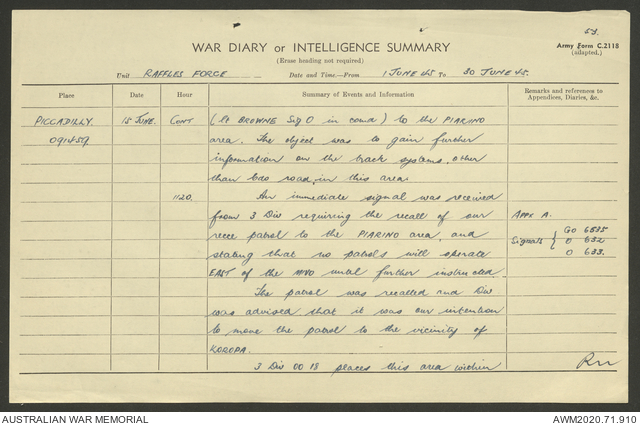 53.
WAR DIARY or INTELLIGENCE SUMMARY
Army Form C.2118
(adapted.)
(Erase heading not required)
Unit RAFFLES FORCE Date and Time—From 1 JUNE 45 To 30 JUNE 45.
Place Date Hour Summary of Events and Information Remarks and references to
Appendices, Diaries, &c.
PICCADILLY. 15 JUNE. CONT (Lt BROWNE Sig O in comd) to the PIARINO
091459. area. The object was to gain further
information on the track systems, other
than road, in this area.
1120. An immediate signal was received
from 3 Div requiring the recall of our APPX A.
recce patrol to the PIARINO area, and GO 6535
stating that no patrols will operate Signals { O 632
EAST of the MIVO until further instructed. O 633.
The patrol was recalled and Div
was advised that it was our intention
to move the patrol to the vicinity of
KOROPA.
3 Div OO 18 places this area within
AUSTRALIAN WAR MEMORIAL AWM2020.71.910